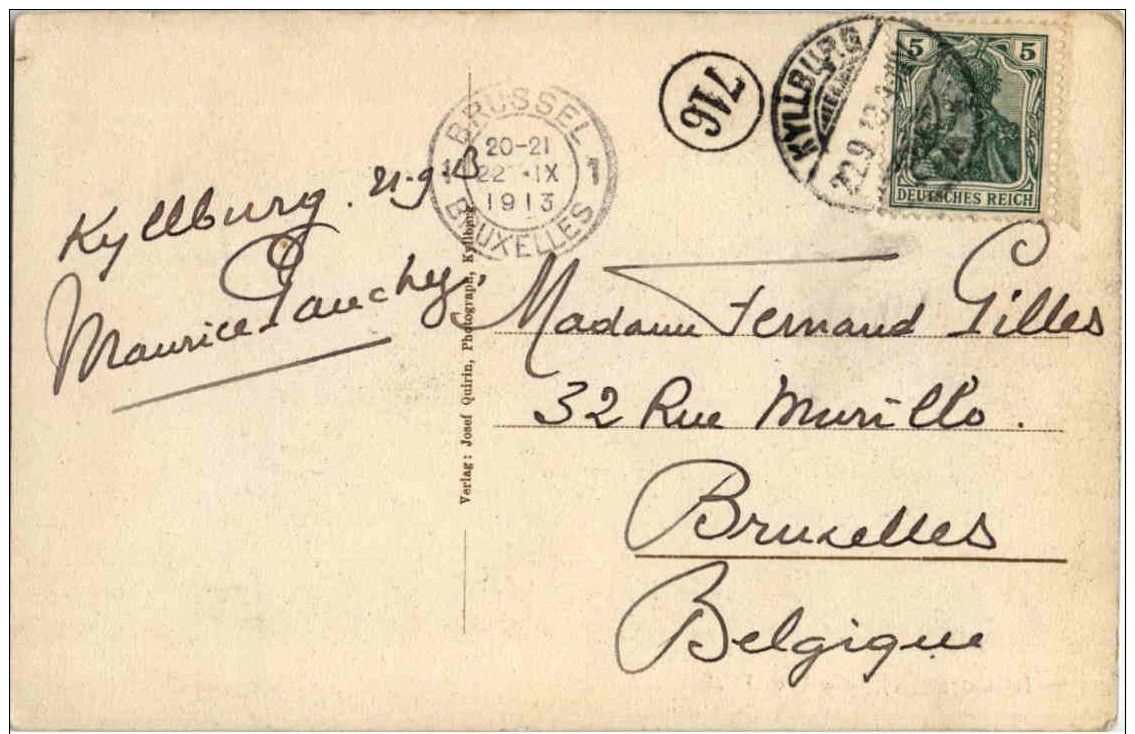 Kyllburg. 21-9-13
Maurice
BRÜSSEL
1 20-21 1
22 ·IX
1913
BRUXELLES
746
KYLLBURG
22.9.13.
5 5
DEUTSCHES REICH
Verlag: Josef Quirin, Photograph, Kyllburg
Madame Fernand Gilles
32 Rue Murillo.
Bruxelles
Belgique